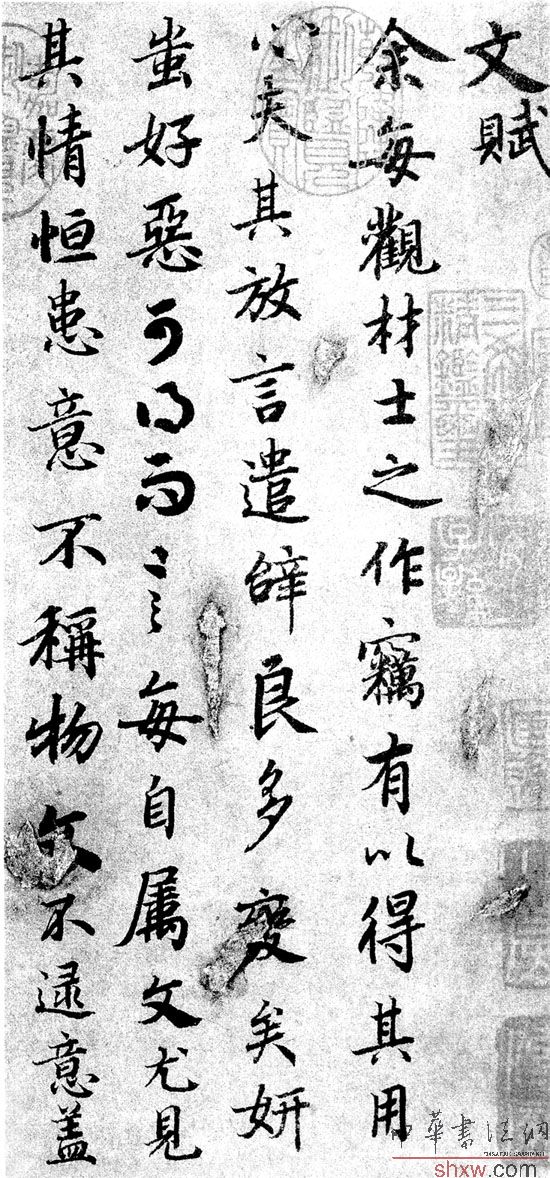 文賦
余每觀材士之作竊有以得其用
心夫其放言遣辭良多變矣妍
蚩好惡可得而言每自属文尤見
其情恒患意不稱物文不逮意盖
中華書法網
shxw.com